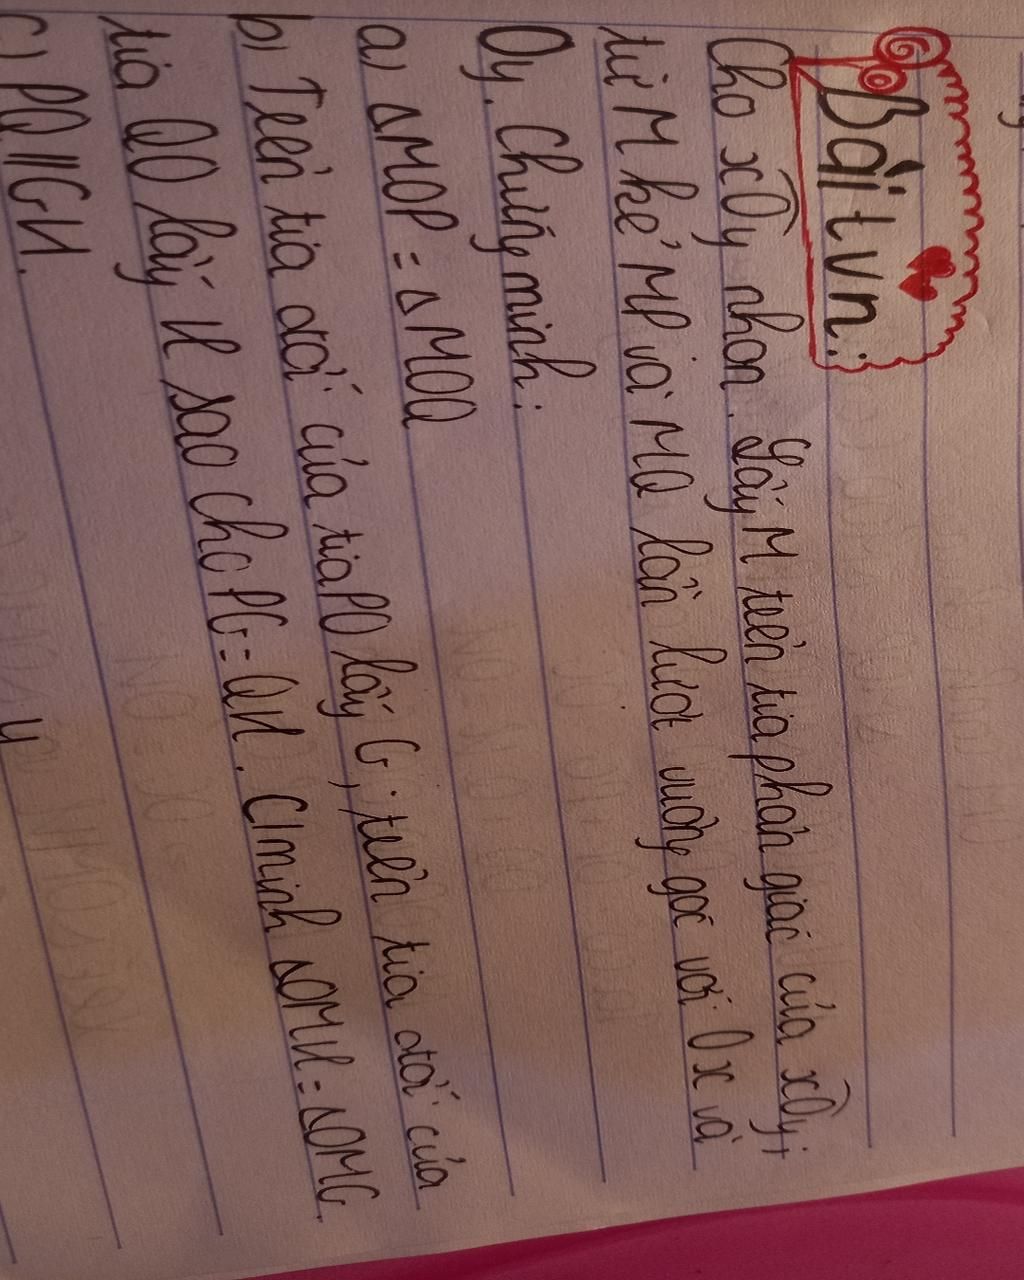 Bài tvn:
Cho xOy nhọn. Lấy M trên tia phân giác của xOy;
từ M kẻ MP và MQ lần lượt vuông góc với Ox và
Oy. Chứng minh:
a) ΔMOP = ΔMOQ
b) Trên tia đối của tia PO lấy G; trên tia đối của
tia QO lấy H sao cho PG = QH. C/minh ΔOMH = ΔOMG.
c) PQ // GH.